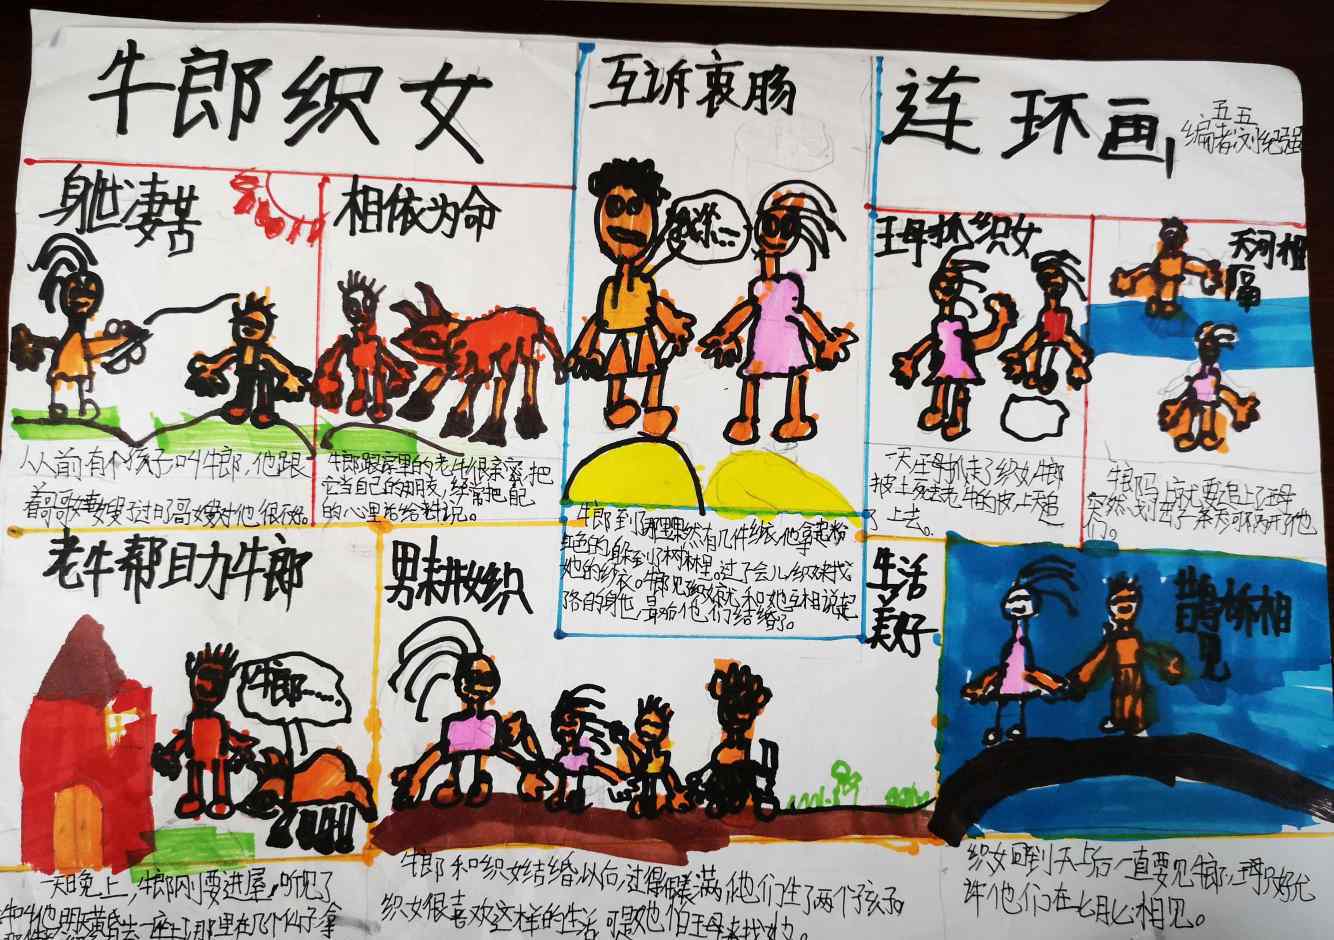 牛郎织女
互诉衷肠
连环画
五五
编者刘纪强
身世凄苦
相依为命
我家……
王母抓织女
天河相
隔
从前有个孩子叫牛郎,他跟
着哥哥嫂嫂过日子哥嫂对他很
牛郎跟家里的老牛很亲密,把
它当自己的朋友,经常把自己
的心里话给说。
牛郎到了那里果然有几件纱衣,他拿起粉
红色的躲到了树林里。过了会儿,织女找
她的纱衣。牛郎见织女就和她互相说起
了各自的身世,最后他们结婚了。
一天王母抓走了织女,牛郎
披上死去老牛的皮,上天追
了上去。
牛郎马上就要追上了王母
突然划出了一条天河隔开了他
们。
老牛帮助牛郎
牛郎……
男耕女织
生活
美好
鹊桥相
见
一天晚上,牛郎刚要进屋,听见了
牛郎和织女结婚以后,过得很美满,他们生了两个孩子。
织女很喜欢这样的生活,可是王母来找她。
织女回到天上后一直要见牛郎,王母只好允
许他们在七月七相见。